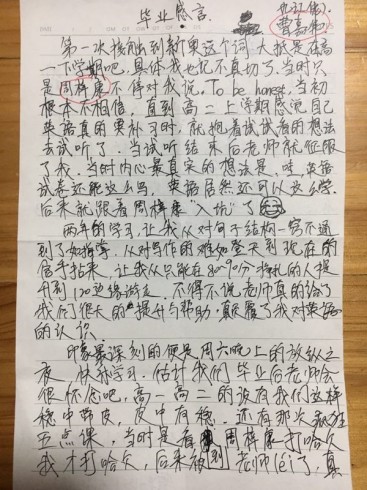 毕业感言.
曹嘉伟
第一次接触到新东这个词大抵是在高
一下学期吧,具体我也记不真切了.当时只
是周梓康不得对我说,To be honest,当初
根本不相信,直到高二上学期感觉自己
英语真的要补习时,就抱着试试看的想法
去试听了.当试听结束后老师就征服
了我.当时内心最真实的想法是,哇,英语
试卷还能这么写,英语居然还可以这么学
后来就跟着周梓康"入坑"了
两年的学习,让我从对句子结构一窍不通
到了如指掌,从对写作的难如登天到现在的
信手拈来,让我从只能在80~90分挣扎的人提
升到120边缘游走.不得不说老师真的给了
我们很大的提升与帮助.颠覆了我对英语
的认识
印象最深刻的便是周六晚上的放纵之
夜,快乐学习.估计我们毕业后老师会
很怀念吧,高一高二的没有我们这样
稳中带皮,皮中有稳.还有那次疯狂
五点课,当时是看到周梓康打哈欠
我才打哈欠,后来被老师怼了,真